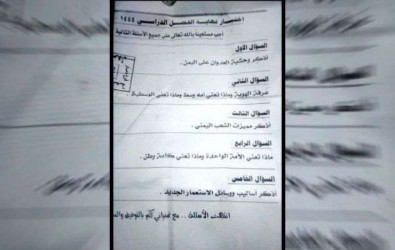 اختبار نهاية الفصل الدراسي ١٤٤٤
اجب مستعينا بالله تعالى على جميع الأسئلة التالية
السؤال الأول
أذكر وحشية العدوان على اليمن.
السؤال الثاني
عرف الهوية وماذا تعني أمة وسط وماذا تعني الوسطية
السؤال الثالث
أذكر مميزات الشعب اليمني.
السؤال الرابع
ماذا تعني الأمة الواحدة وماذا تعني كلمة وطن.
السؤال الخامس
أذكر أساليب ووسائل الاستعمار الجديد.
انتهت الأسئلة .. مع تمنياتي لكم بالتوفيق